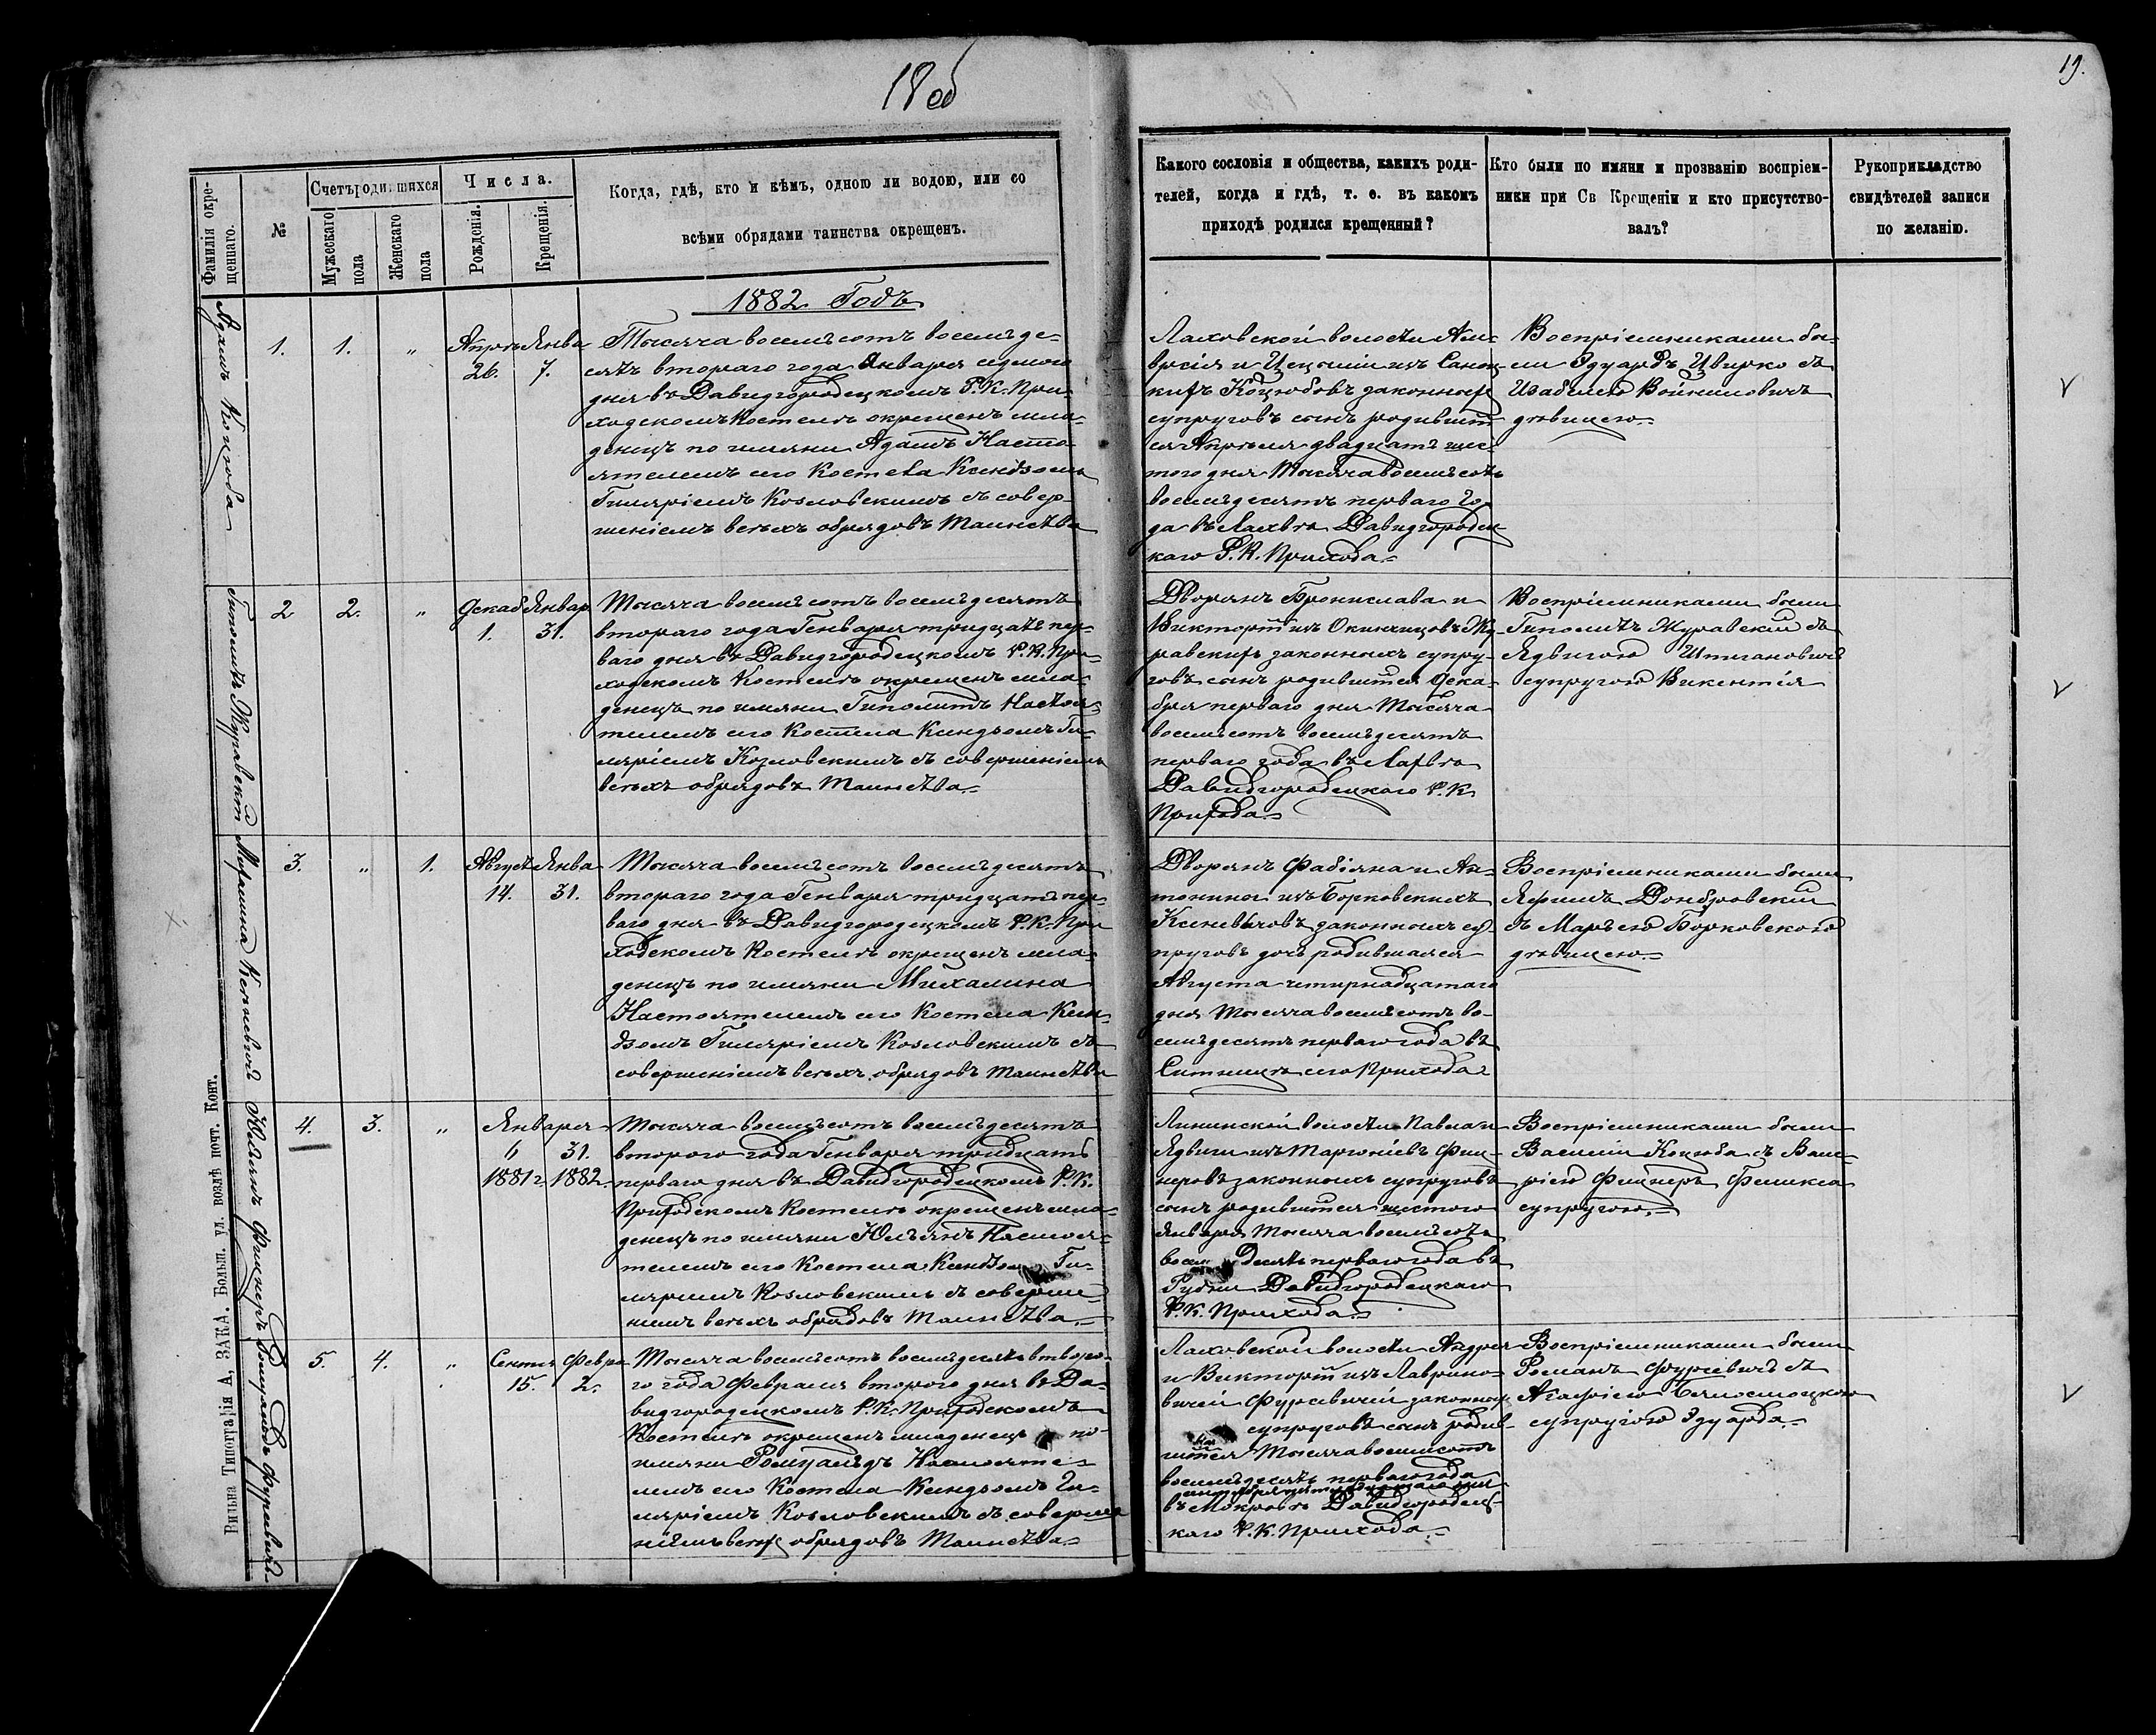 18об
19.
Фамилія окре-
щеннаго.
№
Счетъ родившихся
Мужескаго
пола
Женскаго
пола
Числа.
Рожденія.
Крещенія.
Когда, гдѣ, кто и кѣмъ, одною ли водою, или со
всѣми обрядами таинства окрещенъ.
Какого сословія и общества, какихъ роди-
телей, когда и гдѣ, т. е. въ какомъ
приходѣ родился крещенный?
Кто были по имяни и прозванію воспріем-
ники при Св Крещеніи и кто присутство-
валъ?
Рукоприкладство
свидѣтелей записи
по желанію.
1882 Годъ
Адамъ Коцюба
1.
1.
„
Апрѣль
26.
Янва
7.
Тысяча восемьсотъ восемьде-
сятъ втораго года Января седьмаго
дня въ Давидгородецкомъ Р. К. При-
ходскомъ Костелѣ окрещенъ мла-
денецъ по имяни Адамъ Насто-
ятелемъ его Костела Ксендзомъ
Гиляріемъ Козловскимъ съ совер-
шеніемъ всѣхъ обрядовъ Таинства
Лаховской волости Ам-
вросія и Цецыліи изъ
кихъ Коцюбовъ законныхъ
супруговъ сынъ родившій-
ся Апрѣля двадцать шес-
того дня Тысяча восемьсотъ
восемьдесятъ перваго го-
да въ Лахвѣ Давидгородец-
каго Р. К. Прихода.
Воспріемниками бы-
ли Эдуардъ Цвирко съ
Изабелею Войниловичъ
дѣвицею.
Гиполитъ Журавскій
2
2.
„
Декаб
1.
Январ
31.
Тысяча восемьсотъ восемьдесятъ
втораго года Генваря тридцать пер-
ваго дня въ Давидгородецкомъ Р. К. При-
ходскомъ Костелѣ окрещенъ мла-
денецъ по имяни Гиполитъ Настоя-
телемъ его Костела Ксендзомъ Ги-
ляріемъ Козловскимъ съ совершеніемъ
всѣхъ обрядовъ Таинства.
Дворянъ Бронислава и
Викторіи изъ Окинчицовъ Жу-
равскихъ законныхъ супру-
говъ сынъ родившійся Дека-
бря перваго дня Тысяча
восемьсотъ восемьдесятъ
перваго года въ Лахвѣ
Давидгородецкаго Р. К.
Прихода.
Воспріемниками были
Гиполитъ Журавскій съ
Ядвигою
супругою Викентія
Михалина Ксеневичъ
3.
„
1.
Август
14.
Янва
31.
Тысяча восемьсотъ восемьдесятъ
втораго года Генваря тридцать пер-
ваго дня въ Давидгородецкомъ Р. К. При
ходскомъ Костелѣ окрещенъ мла-
денецъ по имяни Михалина
Настоятелемъ его Костела Ксен-
дзомъ Гиляріемъ Козловскимъ съ
совершеніемъ всѣхъ обрядовъ Таинства
Дворянъ Фабіяна и Ан-
тонины изъ Борковскихъ
Ксеневичовъ законныхъ су-
пруговъ дочь родившаяся
Августа четырнадцатаго
дня Тысяча восемьсотъ во-
семьдесятъ перваго года въ
Ситницѣ его Прихода
Воспріемниками были
Домбровскій
съ Марьею Борковскою
дѣвицею.
Юльянъ Фицнеръ
4.
3.
„
Января
6
31.
1881 г. 1882
Тысяча восемьсотъ восемьдесятъ
второго года Генваря тридцать
перваго дня въ Давидгородецкомъ Р. К.
Приходскомъ Костелѣ окрещенъ мла-
денецъ по имяни Юльянъ Настоя-
телемъ его Костела Ксендзомъ Ги-
ляріемъ Козловскимъ съ соверше-
ніемъ всѣхъ обрядовъ Таинства.
Лининской волости Павла и
Ядвиги изъ Фиц-
неровъ законныхъ супруговъ
сынъ родившійся шестого
Января Тысяча восемьсотъ
восемьдесятъ перваго года въ
Давидгородецкаго
Р. К. Прихода.
Воспріемниками были
Василій Коцюба съ Вале-
ріею Фицнеръ Феликса
супругою.
Ромуальдъ Фурсевичъ
5.
4.
„
Сентяб
15.
Февра
2.
Тысяча восемьсотъ восемьдесятъ второ-
го года Февраля второго дня въ Да-
видгородецкомъ Р. К. Приходскомъ
Костелѣ окрещенъ младенецъ по
имяни Ромуальдъ Настояте-
лемъ его Костела Ксендзомъ Ги-
ляріемъ Козловскимъ съ соверше
ніемъ всѣхъ обрядовъ Таинства.
Лаховской волости Андрея
и Викторіи изъ Лаврино-
вичей Фурсевичей законныхъ
супруговъ сынъ родив-
шійся Тысяча восемьсотъ
восемьдесятъ перваго года
сентября пятнадцатаго дня
въ Мокровѣ Давидгородец-
каго Р. К. Прихода.
Воспріемниками были
Романъ Фурсевичъ съ
Агафіею Бялосноцкою
супругою Эдуарда.
Вильна Типографія А. ЗАКА. Больш. ул. возлѣ почт. Конт.